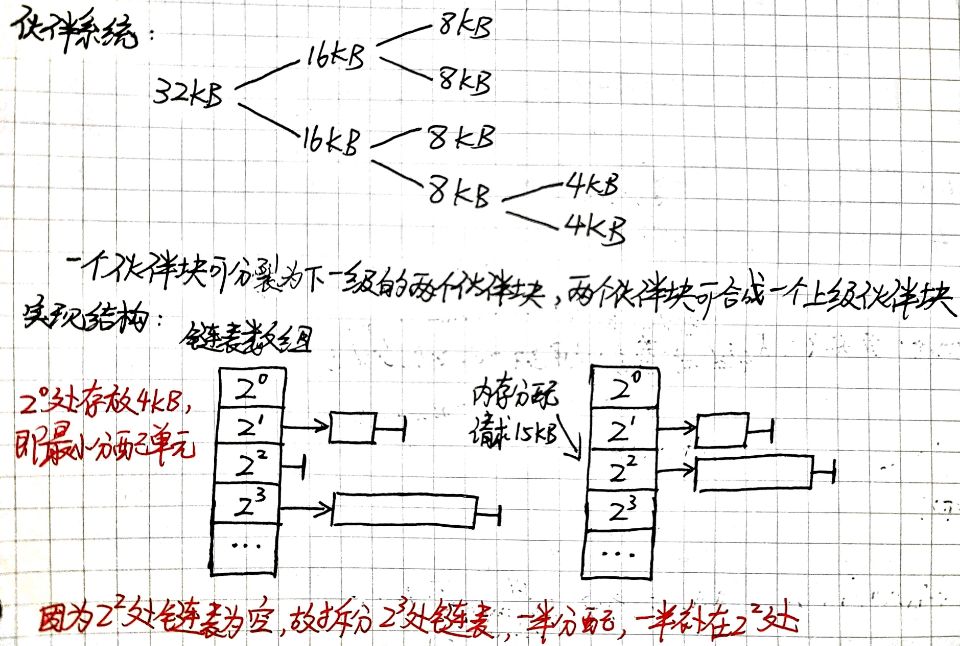 伙伴系统：
8KB
16KB
8KB
32KB
16KB
8KB
8KB
4KB
4KB
一个伙伴块可分裂为下一级的两个伙伴块，两个伙伴块可合成一个上级伙伴块
实现结构：
链表数组
2⁰处存放4KB，
即最小分配单元
2⁰
2¹
2²
2³
...
内存分配
请求15KB
2⁰
2¹
2²
2³
...
因为2²处链表为空，故拆分2³处链表，一半分配，一半补在2²处